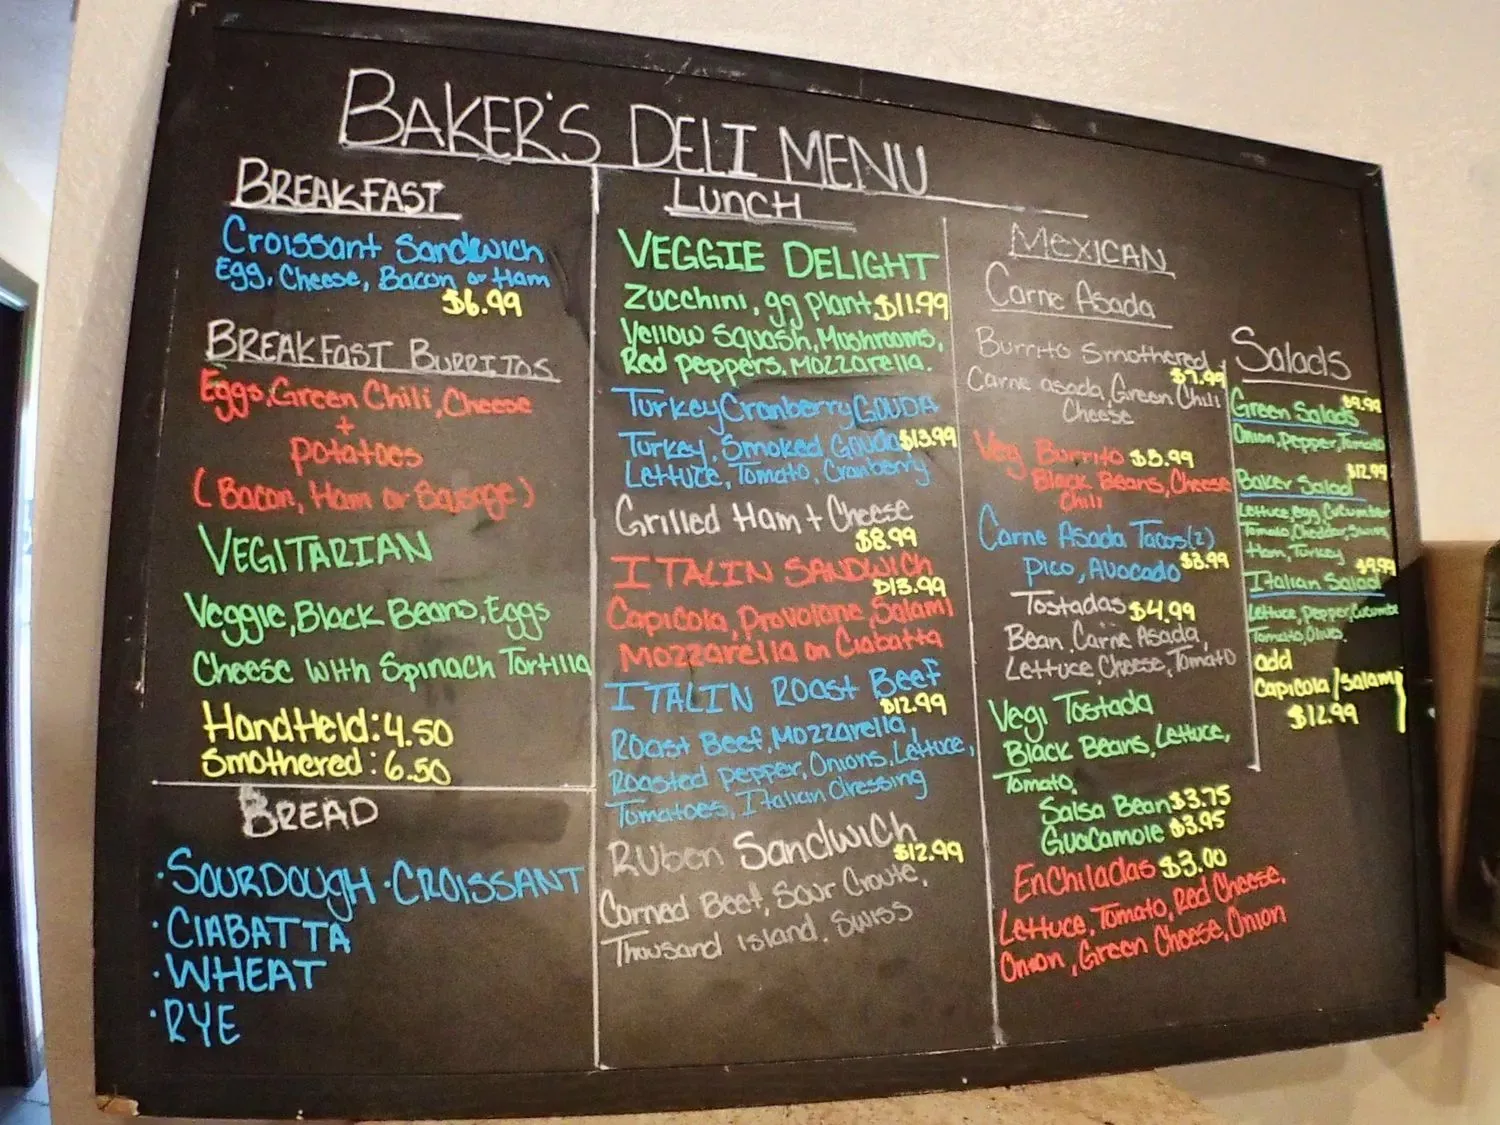 BAKER'S DELI MENU
BREAKFAST
Croissant Sandwich
Egg, Cheese, Bacon or Ham
$6.99
BREAKFAST BURRITOS
Eggs, Green Chili, Cheese
+
Potatoes
(Bacon, Ham or Sausage)
VEGITARIAN
Veggie, Black Beans, Eggs
Cheese with Spinach Tortilla
HandHeld: 4.50
Smothered: 6.50
BREAD
·SOURDOUGH ·CROISSANT
·CIABATTA
·WHEAT
·RYE
LUNCH
VEGGIE DELIGHT
Zucchini, gg plant $11.99
Yellow Squash, Mushrooms,
Red Peppers, Mozzarella.
Turkey Cranberry GOUDA
Turkey, Smoked Gouda $13.99
Lettuce, Tomato, Cranberry
Grilled Ham + Cheese
$8.99
ITALIN SANDWICH
$13.99
Capicola, Provolone, Salami
Mozzarella on Ciabatta
ITALIN ROAST Beef
$12.99
Roast Beef, Mozzarella,
Roasted pepper, Onions, Lettuce,
Tomatoes, Italian dressing
RUben Sandwich
$12.99
Corned Beef, Sour Croute,
Thousand island, Swiss
MEXICAN
Carne Asada
Burrito Smothered
$7.99
Carne asada, Green Chili
Cheese
Veg Burrito $5.99
Black Beans, Cheese
Chili
Carne Asada Tacos(2)
Pico, Avocado $3.99
Tostadas $4.99
Bean, Carne Asada,
Lettuce, Cheese, Tomato
Vegi Tostada
Black Beans, Lettuce,
Tomato,
Salsa Bean $3.75
Guacamole $3.95
Enchiladas $3.00
Lettuce, Tomato, Red Cheese,
Onion, Green Cheese, Onion
Salads
$9.99
Green Salads
Onion, Pepper, Tomato
$12.99
Baker Salad
Lettuce, egg, Cucumber
Tomato, Cheddar, Swiss
Ham, Turkey
$9.99
Italian Salad
Lettuce, Pepper, Cucumbe
Tomato, Olives.
add
Capicola/Salami
$12.99